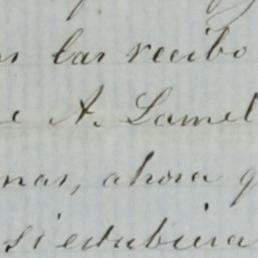 las recibo
A. Lamel
nas, ahora q
si estubiera